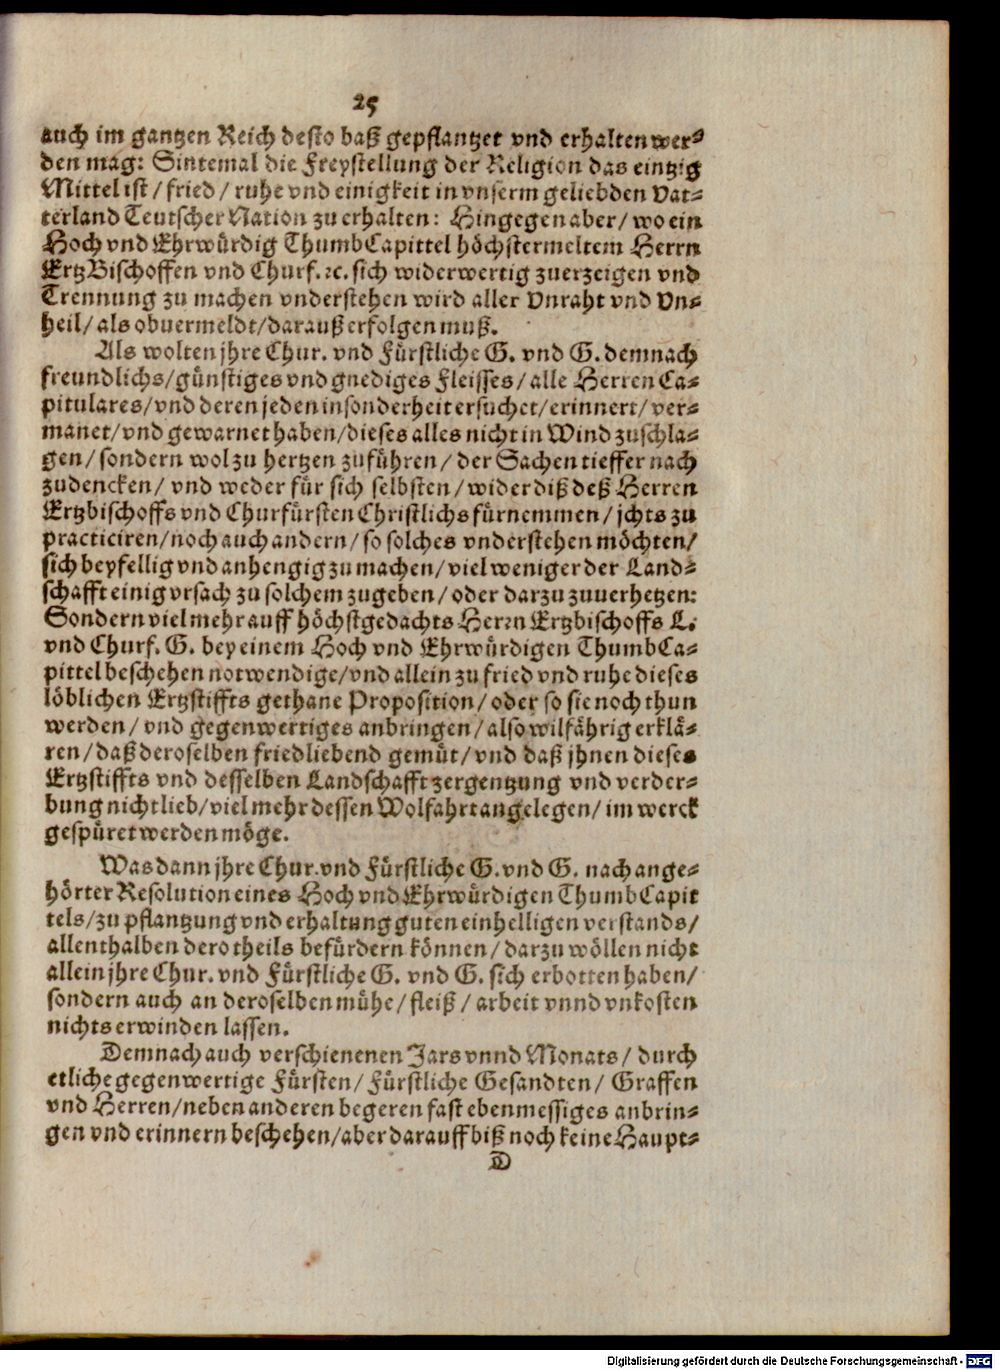 25
auch im gantzen Reich desto baß gepflantzet vnd erhalten wer-
den mag: Sintemal die Freystellung der Religion das eintzig
Mittel ist / fried / ruhe vnd einigkeit in vnserm geliebden Vat-
terland Teutscher Nation zu erhalten: Hingegen aber / wo ein
Hoch vnd Ehrwürdig ThumbCapittel höchstermeltem Herrn
ErtzBischoffen vnd Churf. ꝛc. sich widerwertig zuerzeigen vnd
Trennung zu machen vnderstehen wird aller Vnraht vnd Vn-
heil / als obuermeldt / darauß erfolgen muß.
Als wolten jhre Chur. vnd Fürstliche G. vnd G. demnach
freundlichs / günstiges vnd gnediges Fleisses / alle Herren Ca-
pitulares / vnd deren jeden insonderheit ersuchet / erinnert / ver-
manet / vnd gewarnet haben / dieses alles nicht in Wind zuschla-
gen / sondern wol zu hertzen zuführen / der Sachen tieffer nach
zudencken / vnd weder für sich selbsten / wider diß deß Herren
Ertzbischoffs vnd Churfürsten Christlichs fürnemmen / jchts zu
practiciren / noch auch andern / so solches vnderstehen möchten /
sich beyfellig vnd anhengig zu machen / viel weniger der Land-
schafft einig vrsach zu solchem zugeben / oder darzu zuuerhetzen:
Sondern viel mehr auff höchstgedachts Herrn Ertzbischoffs L.
vnd Churf. G. bey einem Hoch vnd Ehrwürdigen ThumbCa-
pittel beschehen notwendige / vnd allein zu fried vnd ruhe dieses
löblichen Ertzstiffts gethane Proposition / oder so sie noch thun
werden / vnd gegenwertiges anbringen / also wilfährig erklä-
ren / daß deroselben friedliebend gemüt / vnd daß jhnen dieses
Ertzstiffts vnd desselben Landschafft zergentzung vnd verder-
bung nicht lieb / viel mehr dessen Wolfahrt angelegen / im werck
gespüret werden möge.
Was dann jhre Chur. vnd Fürstliche G. vnd G. nach ange-
hörter Resolution eines Hoch vnd Ehrwürdigen ThumbCapit
tels / zu pflantzung vnd erhaltung guten einhelligen verstands /
allenthalben dero theils befürdern können / darzu wöllen nicht
allein jhre Chur. vnd Fürstliche G. vnd G. sich erbotten haben /
sondern auch an deroselben mühe / fleiß / arbeit vnnd vnkosten
nichts erwinden lassen.
Demnach auch verschienenen Jars vnnd Monats / durch
etliche gegenwertige Fürsten / Fürstliche Gesandten / Graffen
vnd Herren / neben anderen begeren fast ebenmessiges anbrin-
gen vnd erinnern beschehen / aber darauff biß noch keine Haupt-
D
Digitalisierung gefördert durch die Deutsche Forschungsgemeinschaft - DFG